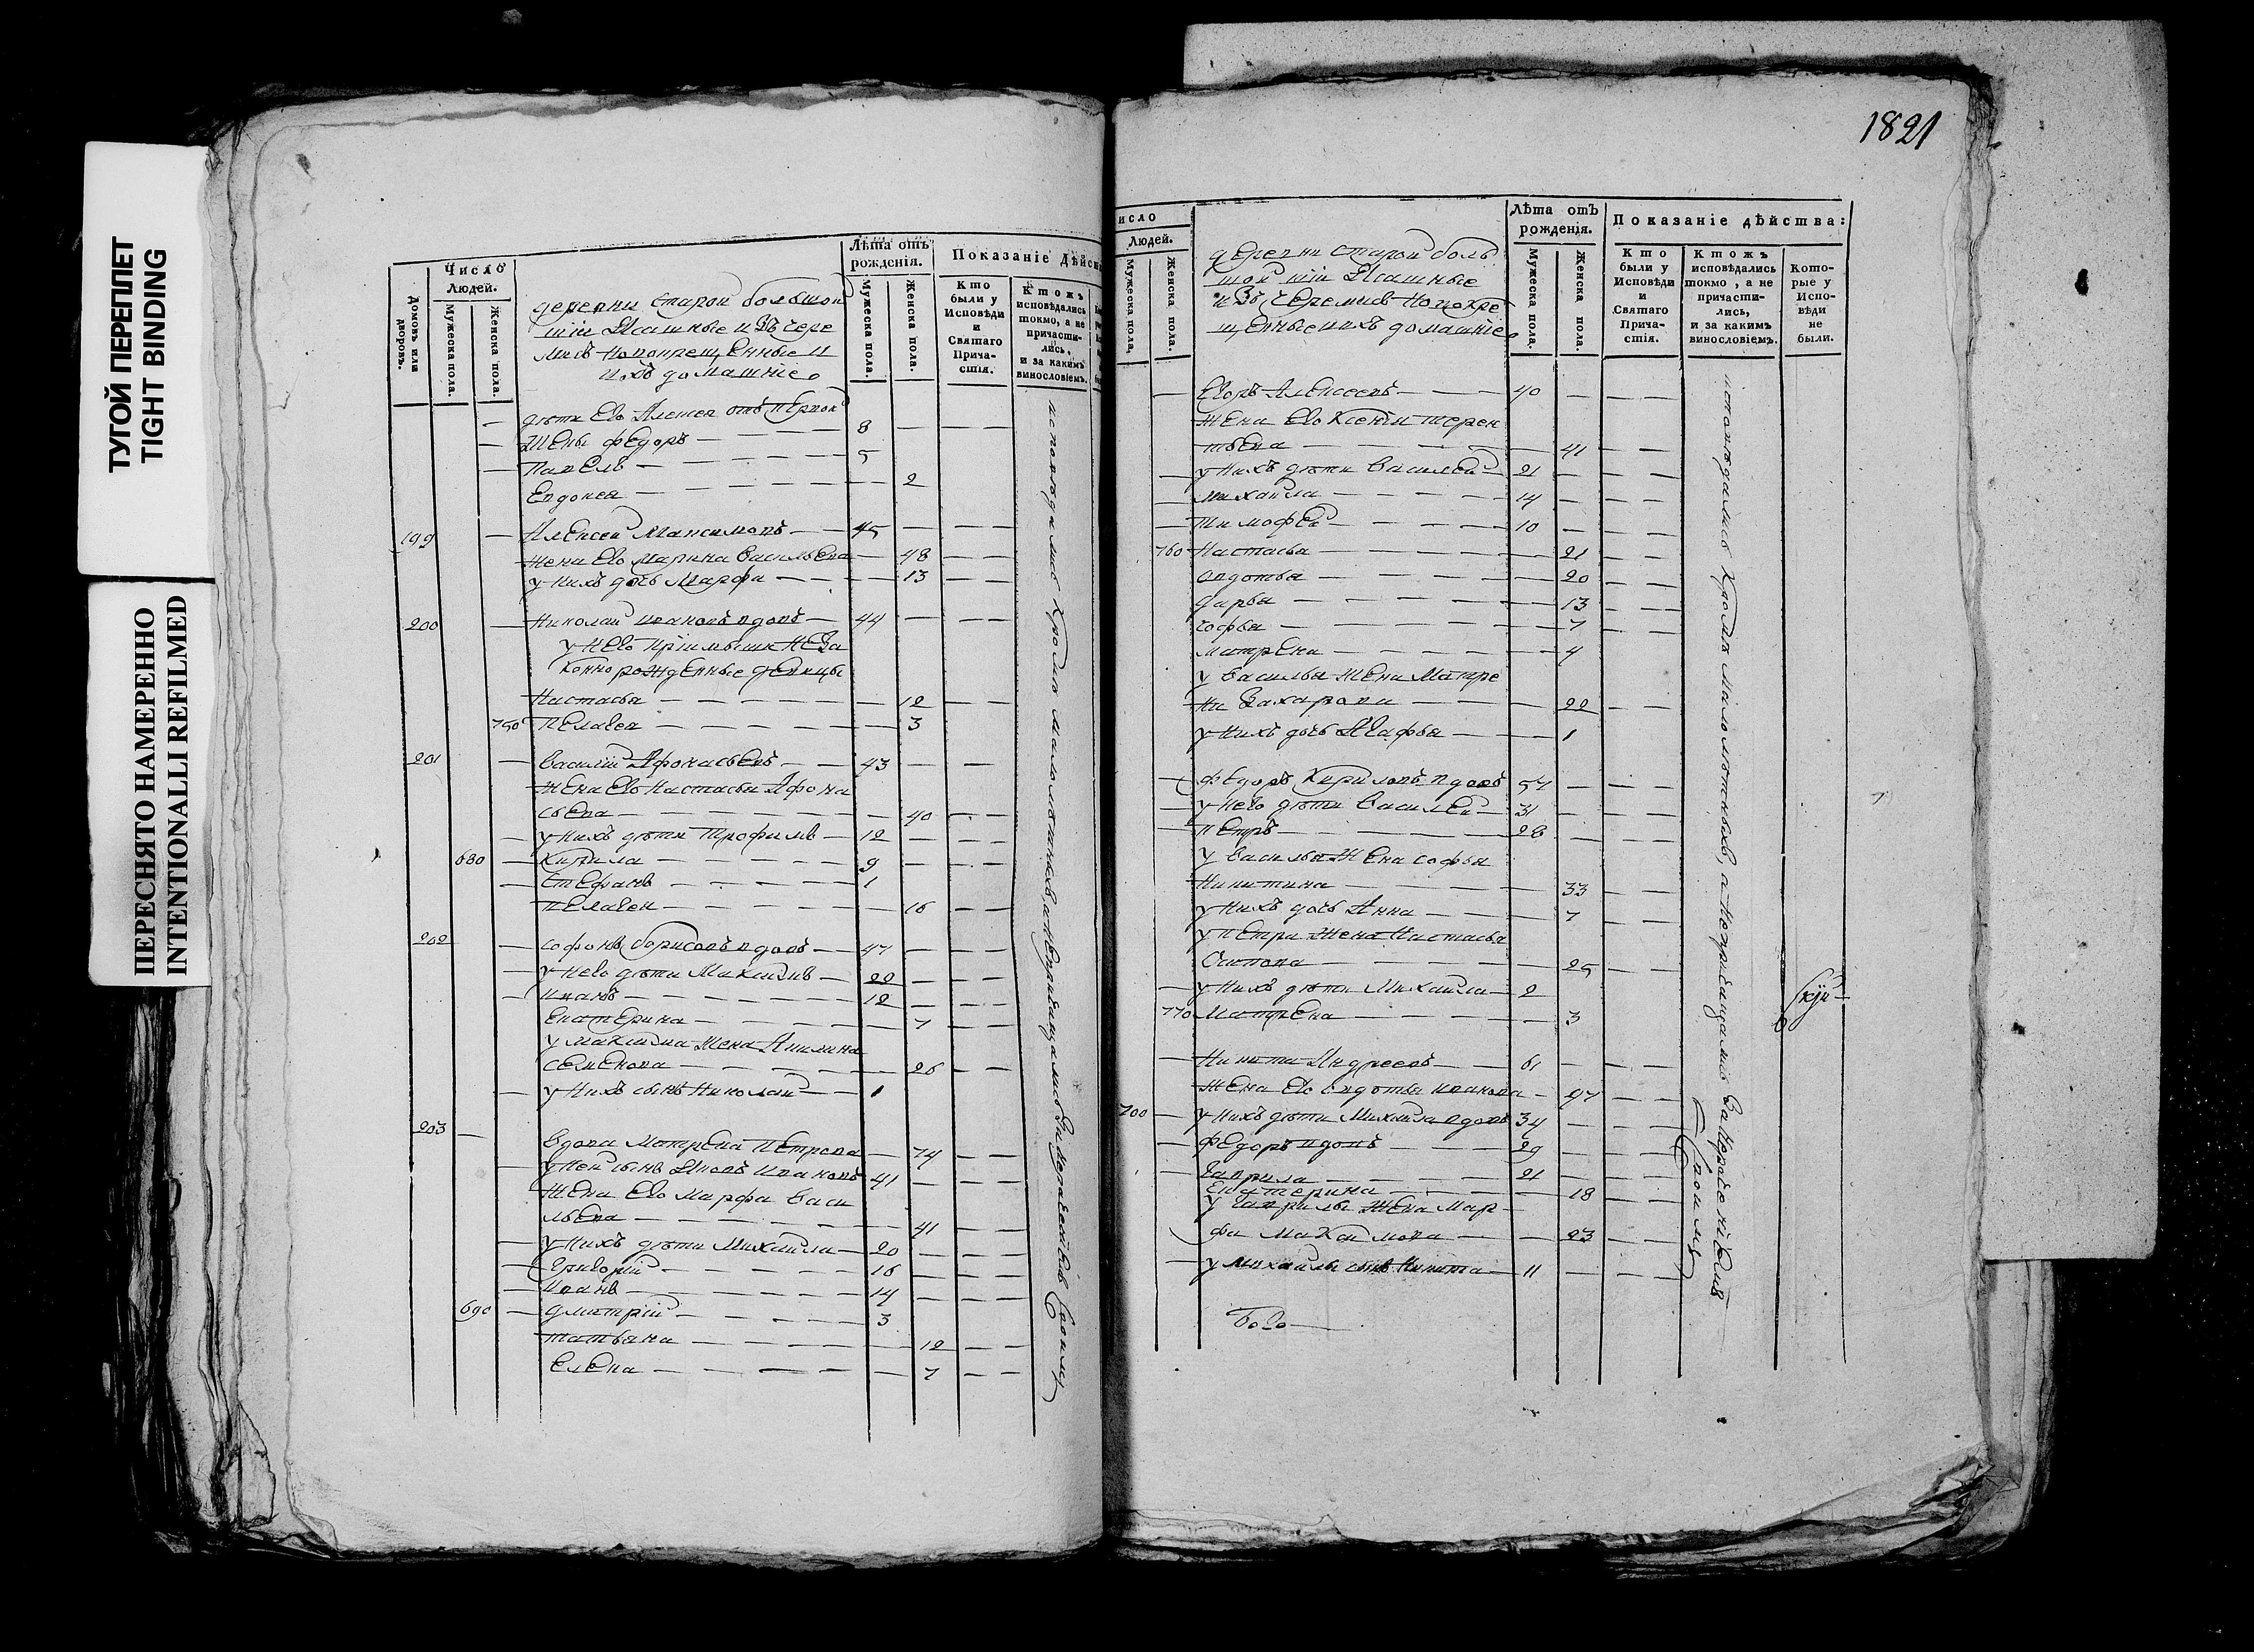 ТУГОЙ ПЕРЕПЛЕТ
TIGHT BINDING
ПЕРЕСНЯТО НАМЕРЕННО
INTENTIONALLI REFILMED
Домовъ или дворовъ.
Число
Людей.
Мужеска пола.
Женска пола.
деревни старой большой
Ясашные изъ чере
мисъ новокрещенные и
ихъ домашние
Лѣта отъ
рожденія.
Мужеска пола.
Женска пола.
Показаніе Дѣйс
Кто
были у
Исповѣди
и
Святаго
Прича-
стія.
Ктожъ
исповѣдались
токмо, а не
причасти-
лись,
и за какимъ
винословіемъ.
дѣти его от первой
жены Федоръ — 8
Павелъ — 5
Евдокея — 2
199 Алексей Максимовъ — 45
жена его Марина Васильева — 48
у нихъ дочь Марфа — 13
200 Николай Ивановъ вдовъ — 44
у него неза
коннорожденные девицы
Настасья — 12
750 Пелагея — 3
201 Василий Афонасьевъ — 43
жена его Настасья Афона
сьева — 40
у нихъ дѣти Трофимъ — 12
680 Кирила — 9
Стефанъ — 1
Пелагея — 16
202 Софонъ Борисовъ вдовъ — 47
у него дѣти Максимъ — 22
Иванъ — 12
Екатерина — 7
у Максима жена Акилина
Семенова — 26
у нихъ сынъ Николай — 1
203 — Вдова Матрена Петрова — 74
у ней сынъ Яковъ Ивановъ — 41
жена его Марфа Васи
льева — 41
у нихъ дѣти Михаила — 20
Григорій — 16
Иванъ — 14
690 Дмитрій — 3
Татьяна — 12
Елена — 7
исповѣдались кромѣ малолѣтныхъ, а не причащались за нерачениемъ своимъ
1821
исло
Людей.
Мужеска пола.
Женска пола.
деревни старой боль
шой Ясашные
изъ черемисъ новокре
щенные и ихъ домашние
Лѣта отъ
рожденія.
Мужеска пола.
Женска пола.
Показаніе дѣйства:
Кто
были у
Исповѣди
и
Святаго
Прича-
стія.
Ктожъ
исповѣдались
токмо, а не
причасти-
лись,
и за какимъ
винословіемъ.
Кото-
рые у
Испо-
вѣди
не
были.
Егоръ Алексеевъ — 40
жена его Ксения Терен
тьева — 41
у нихъ дѣти Василей — 21
Михаила — 14
Тимофей — 10
760 Настасья — 21
Авдотья — 20
Дарья — 13
Софья — 7
Матрена — 4
у Василья жена Матре
на Захарова — 22
у нихъ дочь Агафья — 1
Федоръ Кириловъ вдовъ 57
у него дѣти Василей — 31
Петръ — 28
у Василья жена Софья
Никитина — 33
у нихъ дочь Анна — 7
у Петра жена Настасья
Осипова — 25
у нихъ дѣти Михаила — 2
770 Матрена — 3
Никита Андреевъ — 61
жена его Авдотья Иванова — 57
700 у нихъ дѣти Михаила вдовъ 34
Федоръ вдовъ — 29
Гаврила — 21
Екатерина — 18
у Гаврилы жена Мар
фа Максимова — 23
у Михаилы сынъ Никита — 11
исповѣдались кромѣ малолѣтныхъ, а не причащались за нерачениемъ
своимъ